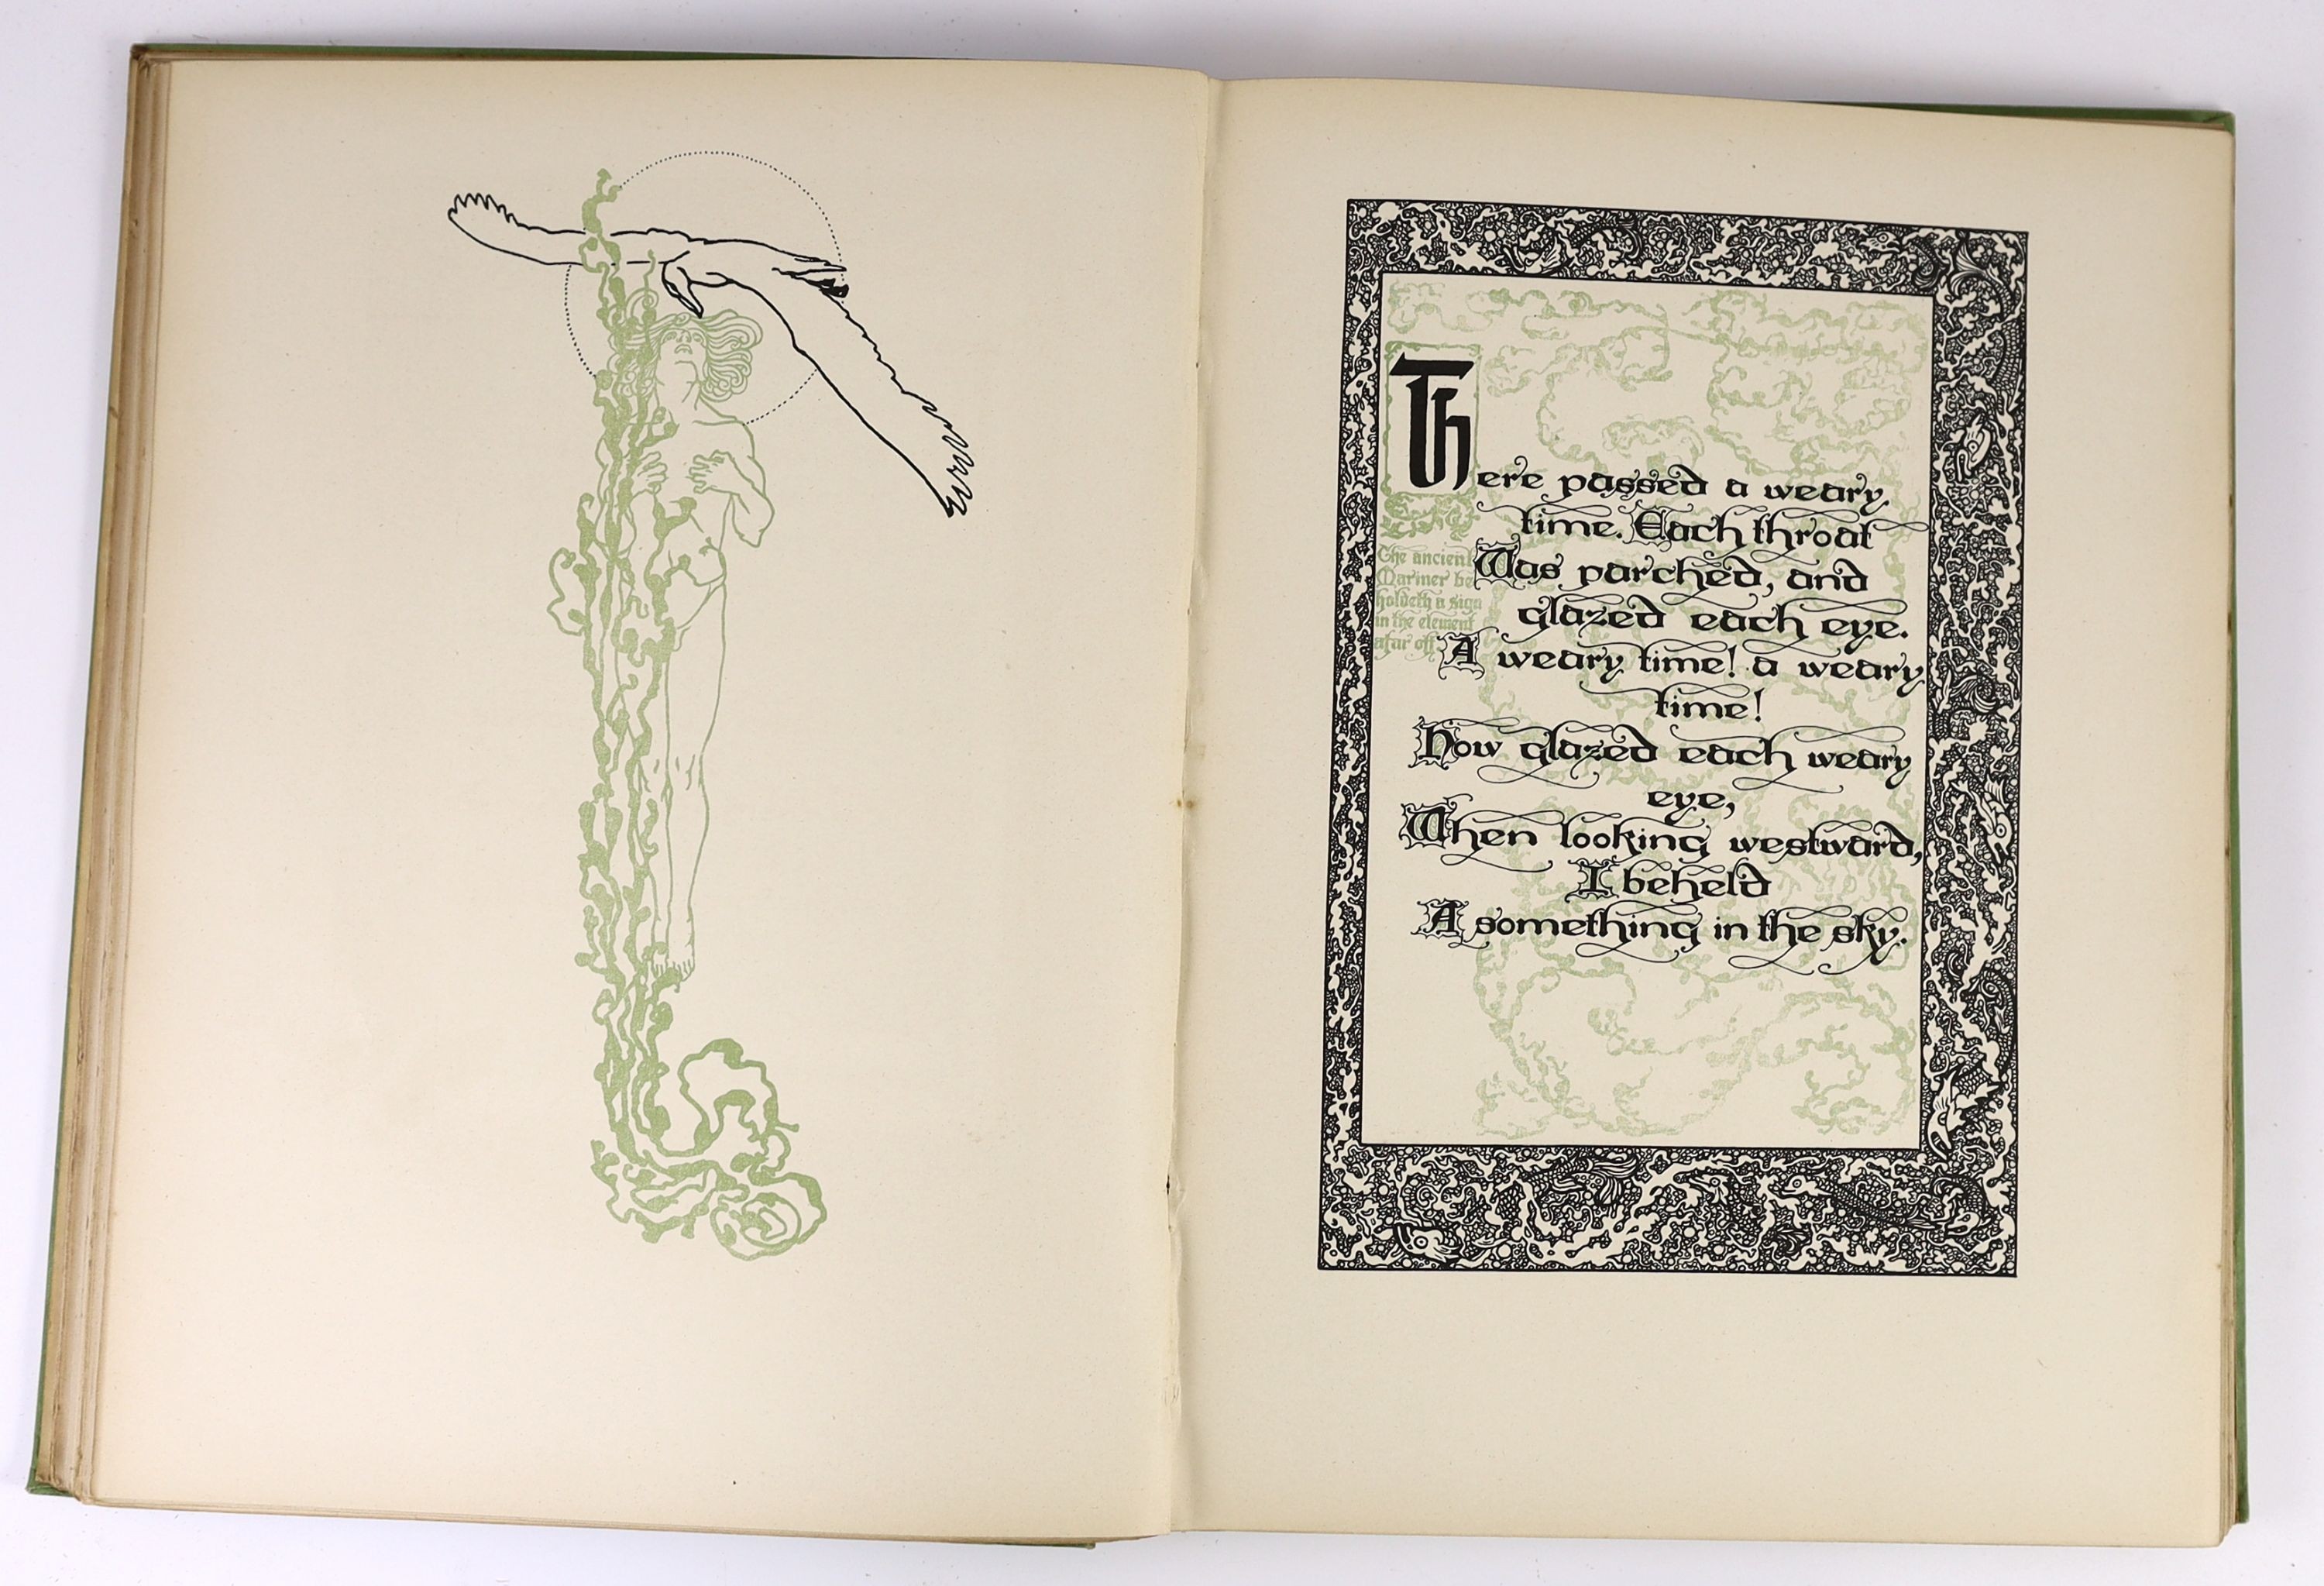 There passed a weary
time. Each throat
Was parched, and
glazed each eye.
A weary time! a weary
time!
How glazed each weary
eye,
When looking westward,
I beheld
A something in the sky.
The ancient
Mariner be
holdeth a sign
in the element
afar off.